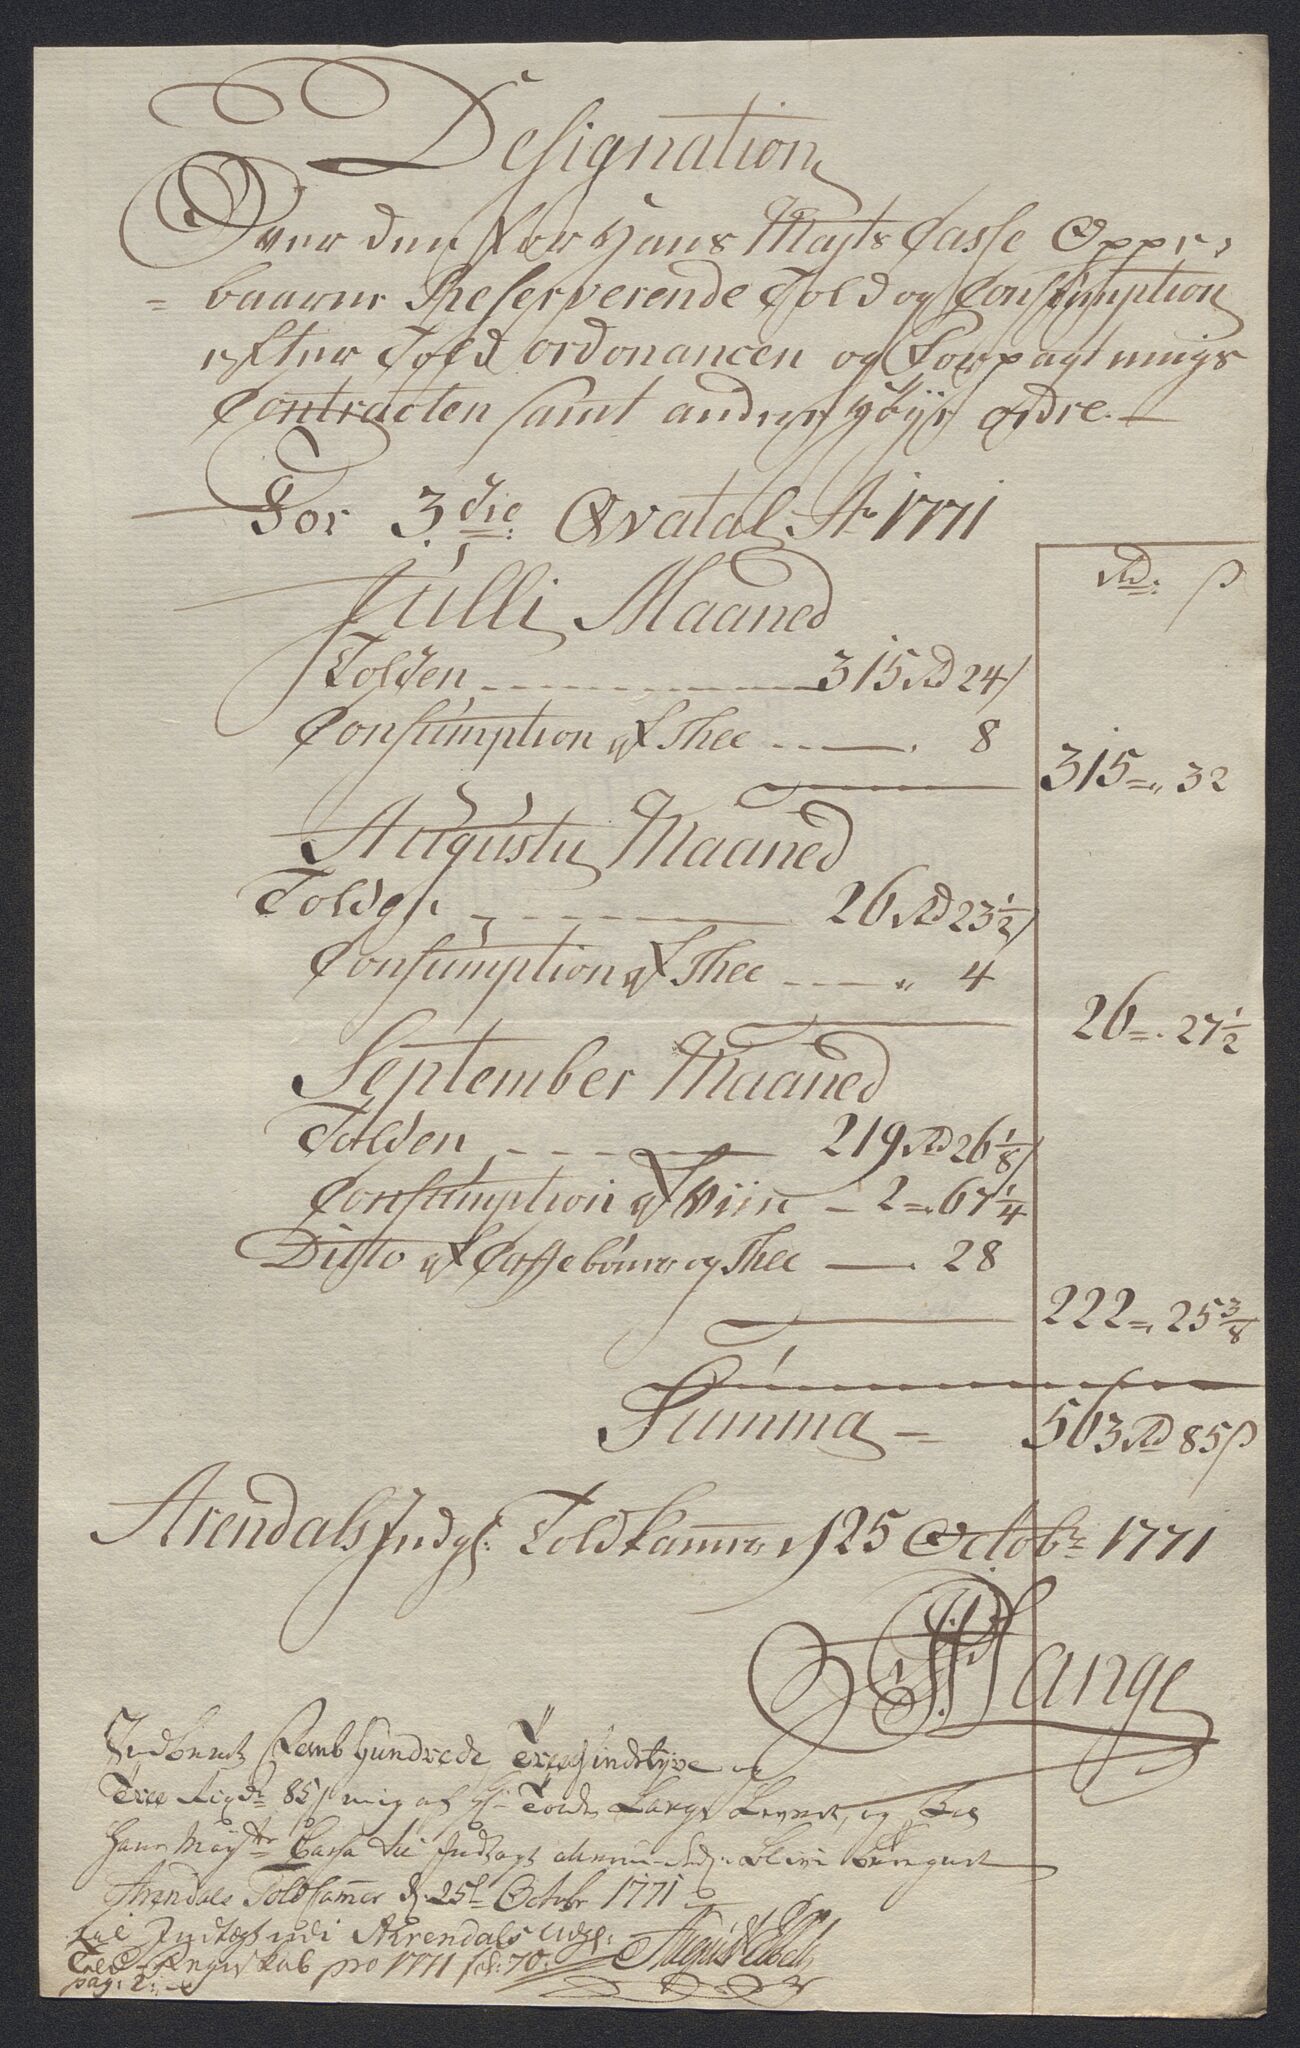 Designation
Over den for Hans Mayts Casse Oppe-
= baarne Reserverende Told og Consumption
efter Told ordonancen og Forpagtnings
Contracten samt andre høije ordre. —
For 3die: Qvatal Ao 1771
Rd: ß
Julli Maaned
Tolden 315 Rd 24 ß
Consumption af Thee 8
315 = " 32
Augustii Maaned
Tolden 26 Rd 23 1/2 ß
Consumption af Thee " 4
26 = . 27 1/2
September Maaned
Tolden 219 Rd 26 1/8 ß
Consumption af Viin — 2 = . 67 1/4
Ditto af Coffebønner og Thee — . 28
222 = , 25 3/8
Summa = 563 Rd 85 ß
Arendals Indgl: Toldkammer d 25 Octobr 1771
Lange
Indbemt Femb Hundrede Treesindstyve og
Tree Rigdr 85 ß mig af Hr Tolder Lange og
Hans Mayts Cassa til Indtægt
Arendals Toldkammer d. 25 Octobr 1771
til Indtægt udi Arendals Indgl:
Told-Regnskab pro 1771 fol: 70:
pag: 2: